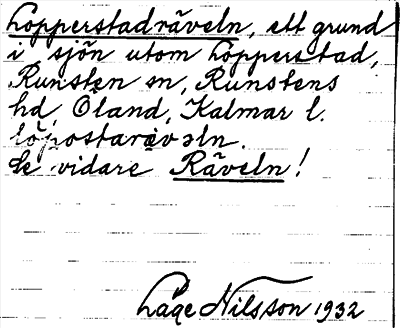 Lopperstadräveln, ett grund
i sjön utom Lopperstad,
Runsten sn, Runstens
hd, Öland, Kalmar l.
löpostarävəln.
Se vidare Räveln!
Låge Nilsson 1932